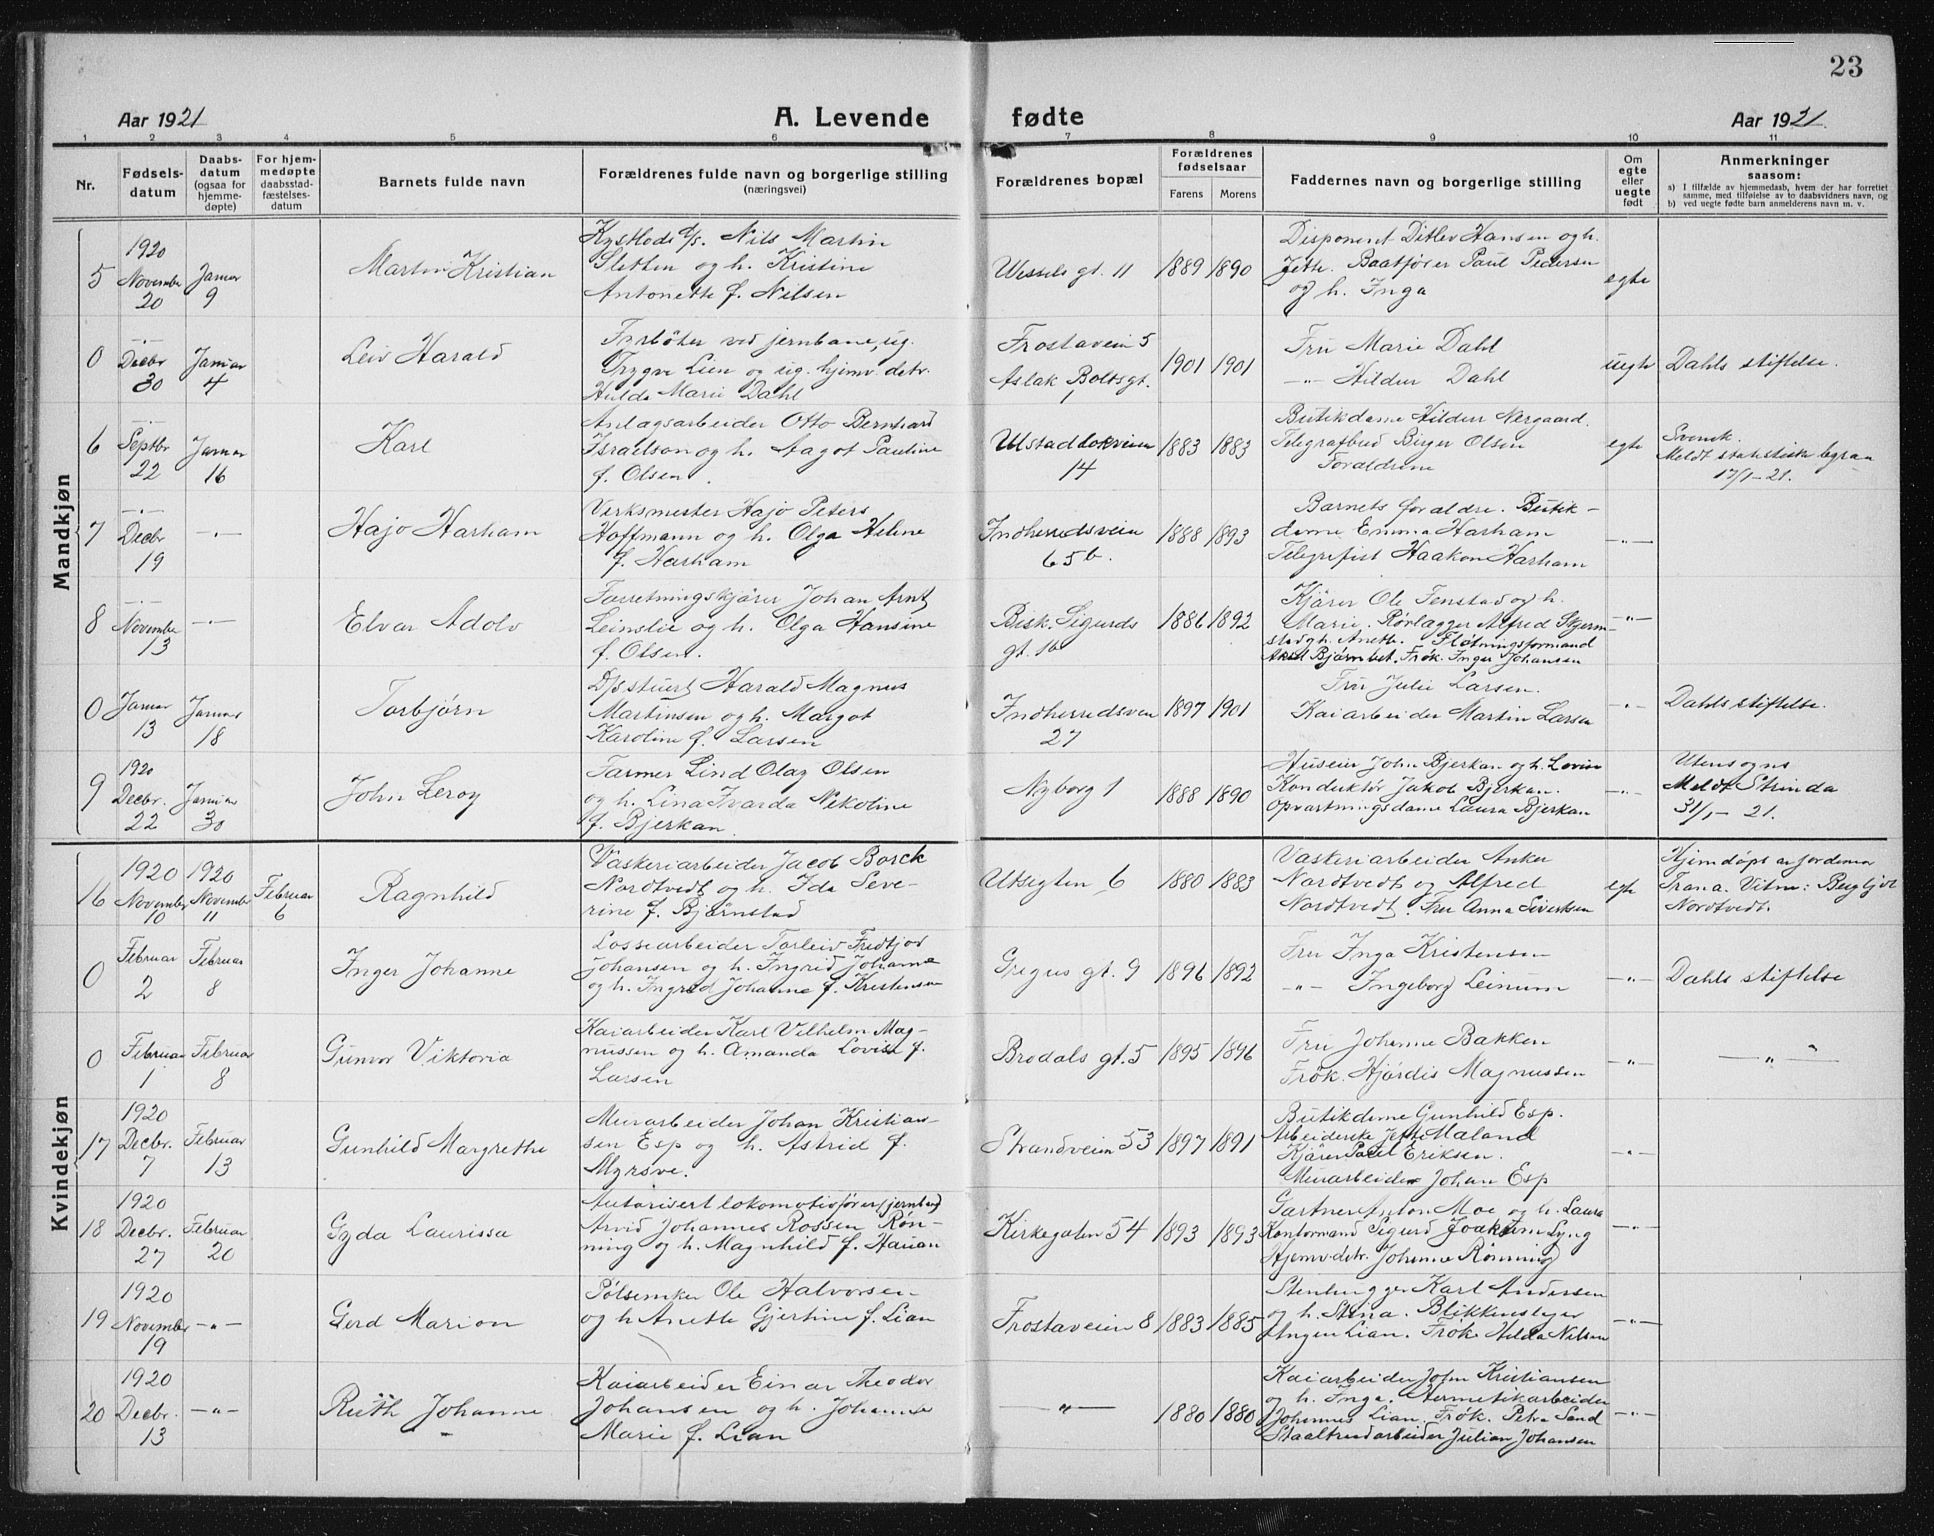 23
Aar 1921
A. Levende
fødte
Aar 1921.
1 2 3 4 5 6 7 8 9 10 11
Nr.
Fødsels-
datum
Daabs-
datum
(ogsaa for
hjemme-
døpte)
For hjem-
medøpte
daabsstad-
fæstelses-
datum
Barnets fulde navn
Forældrenes fulde navn og borgerlige stilling
(næringsvei)
Forældrenes bopæl
Forældrenes
fødselsaar
Farens
Morens
Faddernes navn og borgerlige stilling
Om
egte
eller
uegte
født
Anmerkninger
saasom:
a) I tilfælde av hjemmedaab, hvem der har forrettet
samme, med tilføielse av to daabsvidners navn, og
b) ved uegte fødte barn anmelderens navn m. v.
Mandkjøn
5
1920
November
20
Januar
9
Martin Kristian
Nils Martin
Sletten og h. Kristine
Antonette f. Nilsen
Wessels gt. 11
1889 1890
Disponent Ditlev Hansen og h.
Jette. Baatfører Paul Pedersen
og h. Inga
egte
0
-"-
Decbr
30
Januar
4
Leiv Harald
Fyrbøter ved jernbane, ug.
Trygve Lien og ug. hjemv. detr.
Hulda Marie Dahl
Frostaveien 5
Aslak Boltsgt. 1
1901 1901
Fru Marie Dahl
-"- Hildur Dahl
uegte
Dahls stiftelse.
6
-"-
Septbr
22
Januar
16
Karl
Anlægsarbeider Otto Bernhard
Israelson og h. Aagot Pauline
f. Olsen.
Ulstadløkveien
14
1883 1883
Butikdame Hildur Nergaard.
Telegrafbud Birger Olsen
Forældrene
egte
Svensk.
Meldt statistisk
17/1-21.
7
-"-
Decbr
19
-"-
Hajo Harham
Verksmester Hajo Peters
Hoffmann og h. Olga Helene
f. Harham
Indherredsveien
65b.
1888 1893
Barnets forældre. Butik-
dame Emma Harham
Telegrafist Haakon Harham
-"-
8
-"-
November
13
-"-
Elvar Adolv
Forretningskjører Johan Arnt
Leinslie og h. Olga Hansine
f. Olsen.
Bisk. Sigurds
gt. 1b
1886 1892
Kjører Ole Tenstad og h.
Marie. Rørlægger Alfred Skjerm-
stad og h. Anette. Fløtningsformand
Frøk. Inger Johansen
-"-
0
Januar
13
Januar
18
Torbjørn
D/s stuert Harald Magnus
Martinsen og h. Margot
Karoline f. Larsen
Indherredsveien
27
1897 1901
Fru Julie Larsen.
Kaiarbeider Martin Larsen
-"-
Dahls stiftelse.
9
1920
Decbr.
22
Januar
30
John Leroy
Farmer Lind Olaf Olsen
og h. Lina Ivarda Nikoline
f. Bjerkan.
Nyborg 1
1888 1890
Huseier John Bjerkan og h. Lovise
Konduktør Jakob Bjerkan.
Opvartningsdame Laura Bjerkan
-"-
Utensogns
Meldt Strinda
31/1-21.
Kvindekjøn
16
1920
November
10
1920
November
11
Februar
6
Ragnhild
Vaskeriarbeider Jacob Borck
Nordtvedt og h. Ida Seve-
rine f. Bjørnstad
Utsigten 6
1880 1883
Vaskeriarbeider Anker
Nordtvedt og Alfred
Nordtvedt. Fru Anna Sivertsen
egte
Hjemdøpt av jordemor
Trana. Vitne: Bergljot
Nordtvedt.
0
Februar
2
Februar
8
Inger Johanne
Lossearbeider Torleiv Fredtjov
Johansen og h. Ingrid Johanne
og h. Ingrid Johanne f. Kristensen
Gregus gt. 9
1896 1892
Fru Inga Kristensen
-"- Ingeborg Leinum
-"-
Dahls stiftelse
0
Februar
1
Februar
8
Gunvor Viktoria
Kaiarbeider Karl Vilhelm Mag-
nussen og h. Amanda Lovise f.
Larsen
Brodals gt. 5
1895 1896
Fru Johanne Bakken
Frøk. Hjørdis Magnussen
-"-
-"-
17
1920
Decbr.
7
Februar
13
Gunhild Margrethe
Murarbeider Johan Kristian-
sen Esp og h. Astrid f.
Myrsve.
Strandveien 53
1897 1891
Butikdame Gunhild Esp.
Arbeiderske Jette Maland
Kjører Paul Eriksen.
Murarbeider Johan Esp
-"-
18
1920
Decbr.
27
Februar
20
Gyda Laurissa
Autorisert lokomotivfører jernban
Arvid Johannes Rossen Røn-
ning og h. Magnhild f. Hauan
Kirkegaten 54
1893 1893
Gartner Anton Moe og h. Laura
Kontormand Sigurd Joakim Lyng
Hjemv. detr. Johanne Rønning
-"-
19
1920
November
19
-"-
Gerd Marion
Pølsemaker Ole Halvorsen
og h Anette Gjertine f. Lian
Frostaveien 8
1883 1885
Stenhugger Karl Andersen
og h. Stina. Blikkenslager
Yngen Lian. Frøk. Hilda Nilsen
-"-
20
1920
Decbr.
13
-"-
Ruth Johanne
Kaiarbeider Einar Theodor
Johansen og h. Johanne
Marie f. Lian
-"-
1880 1880
Kaiarbeider John Kristiansen
og h. Inga. Hermetikarbeider
Johannes Lian. Frøk. Petra Sand
Julian Johansen
-"-